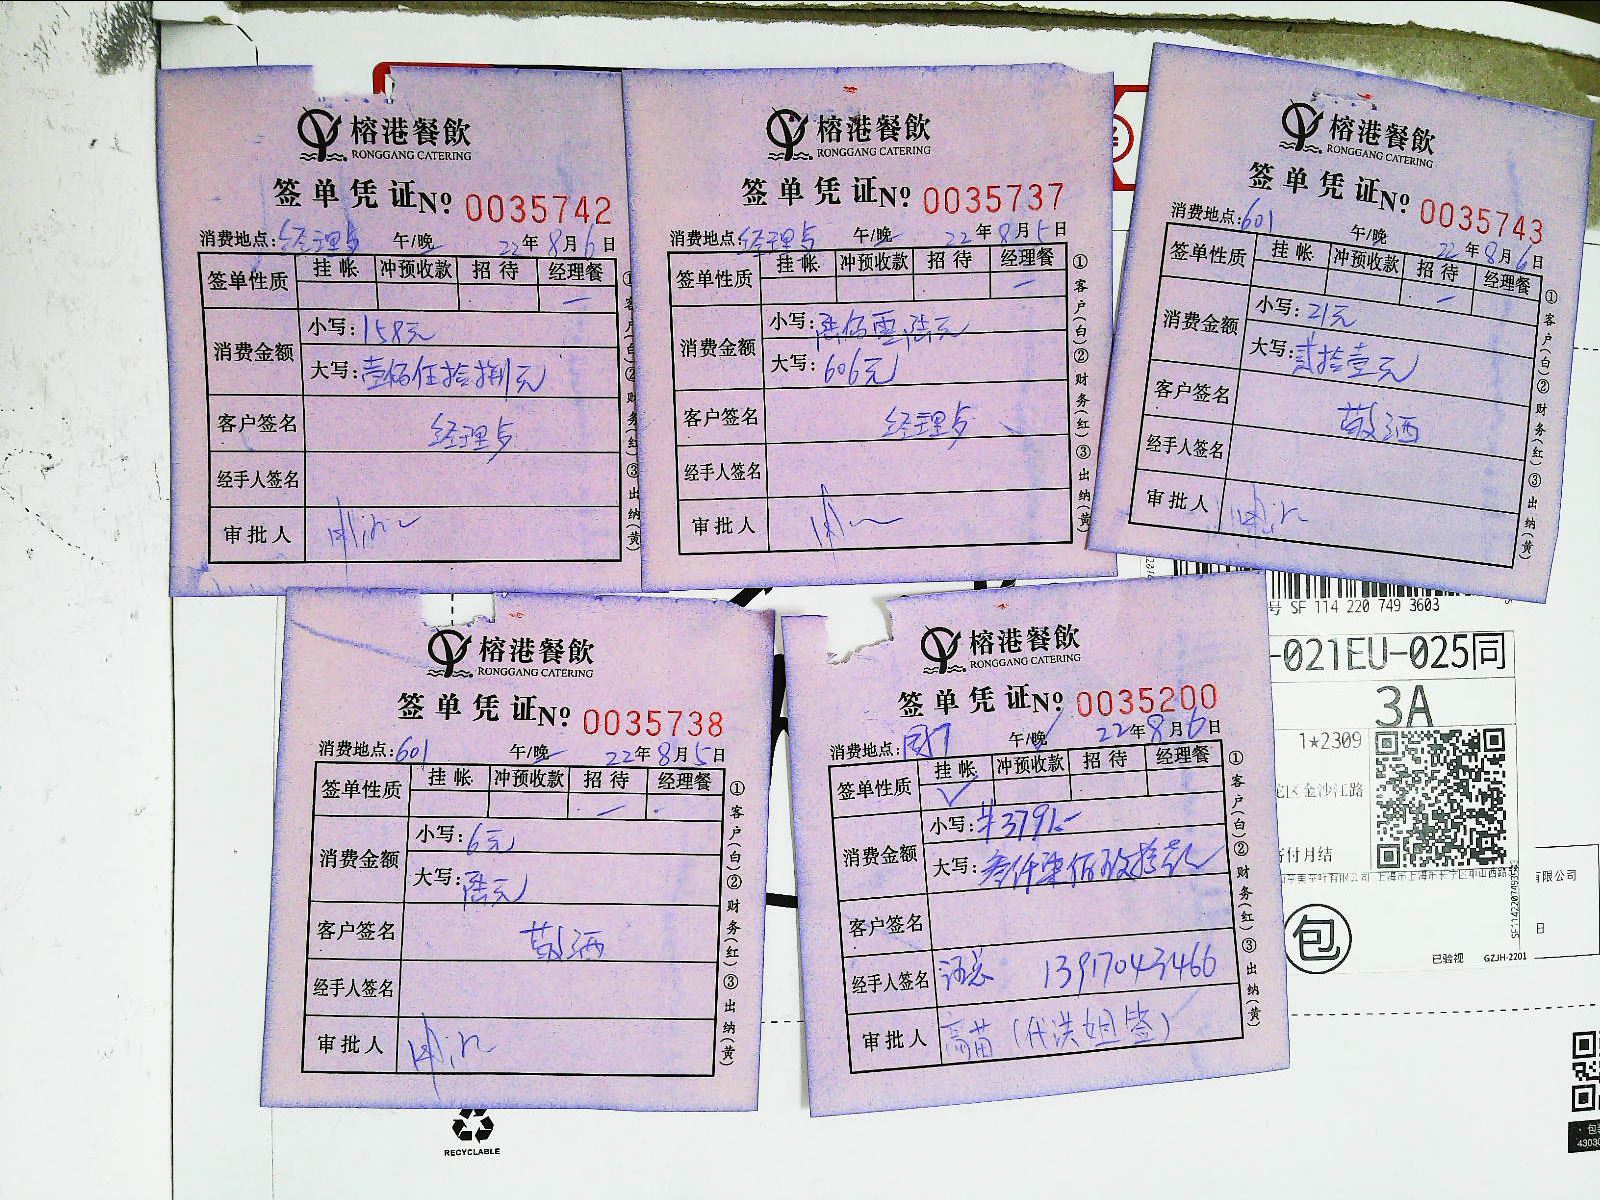 榕港餐飲
RONGGANG CATERING
签单凭证№ 0035742
消费地点:经理与 午/晚 22年8月6日
签单性质 挂帐 冲预收款 招待 经理餐
消费金额 小写:158元
大写:壹佰伍拾捌元
客户签名 经理与
经手人签名
审批人
①客户(白)②财务(红)③出纳(黄)
榕港餐飲
RONGGANG CATERING
签单凭证№ 0035737
消费地点:经理与 午/晚 22年8月5日
签单性质 挂帐 冲预收款 招待 经理餐
消费金额 小写:陆佰零陆元
大写:606元
客户签名 经理与
经手人签名
审批人
①客户(白)②财务(红)③出纳(黄)
榕港餐飲
RONGGANG CATERING
签单凭证№ 0035743
消费地点:601 午/晚 22年8月6日
签单性质 挂帐 冲预收款 招待 经理餐
消费金额 小写:21元
大写:贰拾壹元
客户签名 敬酒
经手人签名
审批人
①客户(白)②财务(红)③出纳(黄)
榕港餐飲
RONGGANG CATERING
签单凭证№ 0035738
消费地点:601 午/晚 22年8月5日
签单性质 挂帐 冲预收款 招待 经理餐
消费金额 小写:6元
大写:陆元
客户签名 敬酒
经手人签名
审批人
①客户(白)②财务(红)③出纳(黄)
榕港餐飲
RONGGANG CATERING
签单凭证№ 0035200
消费地点: 午/晚 22年8月6日
签单性质 挂帐 冲预收款 招待 经理餐
消费金额 小写:¥3791.-
大写:叁仟柒佰玖拾壹元
客户签名
经手人签名 13917043466
审批人 高苗(代洪姐签)
①客户(白)②财务(红)③出纳(黄)
号 SF 114 220 749 3603
-021EU-025同
3A
1*2309
区金沙江路
寄付月结
有限公司
包
日
已验视 GZJH-2201
SF1142207493603
RECYCLABLE